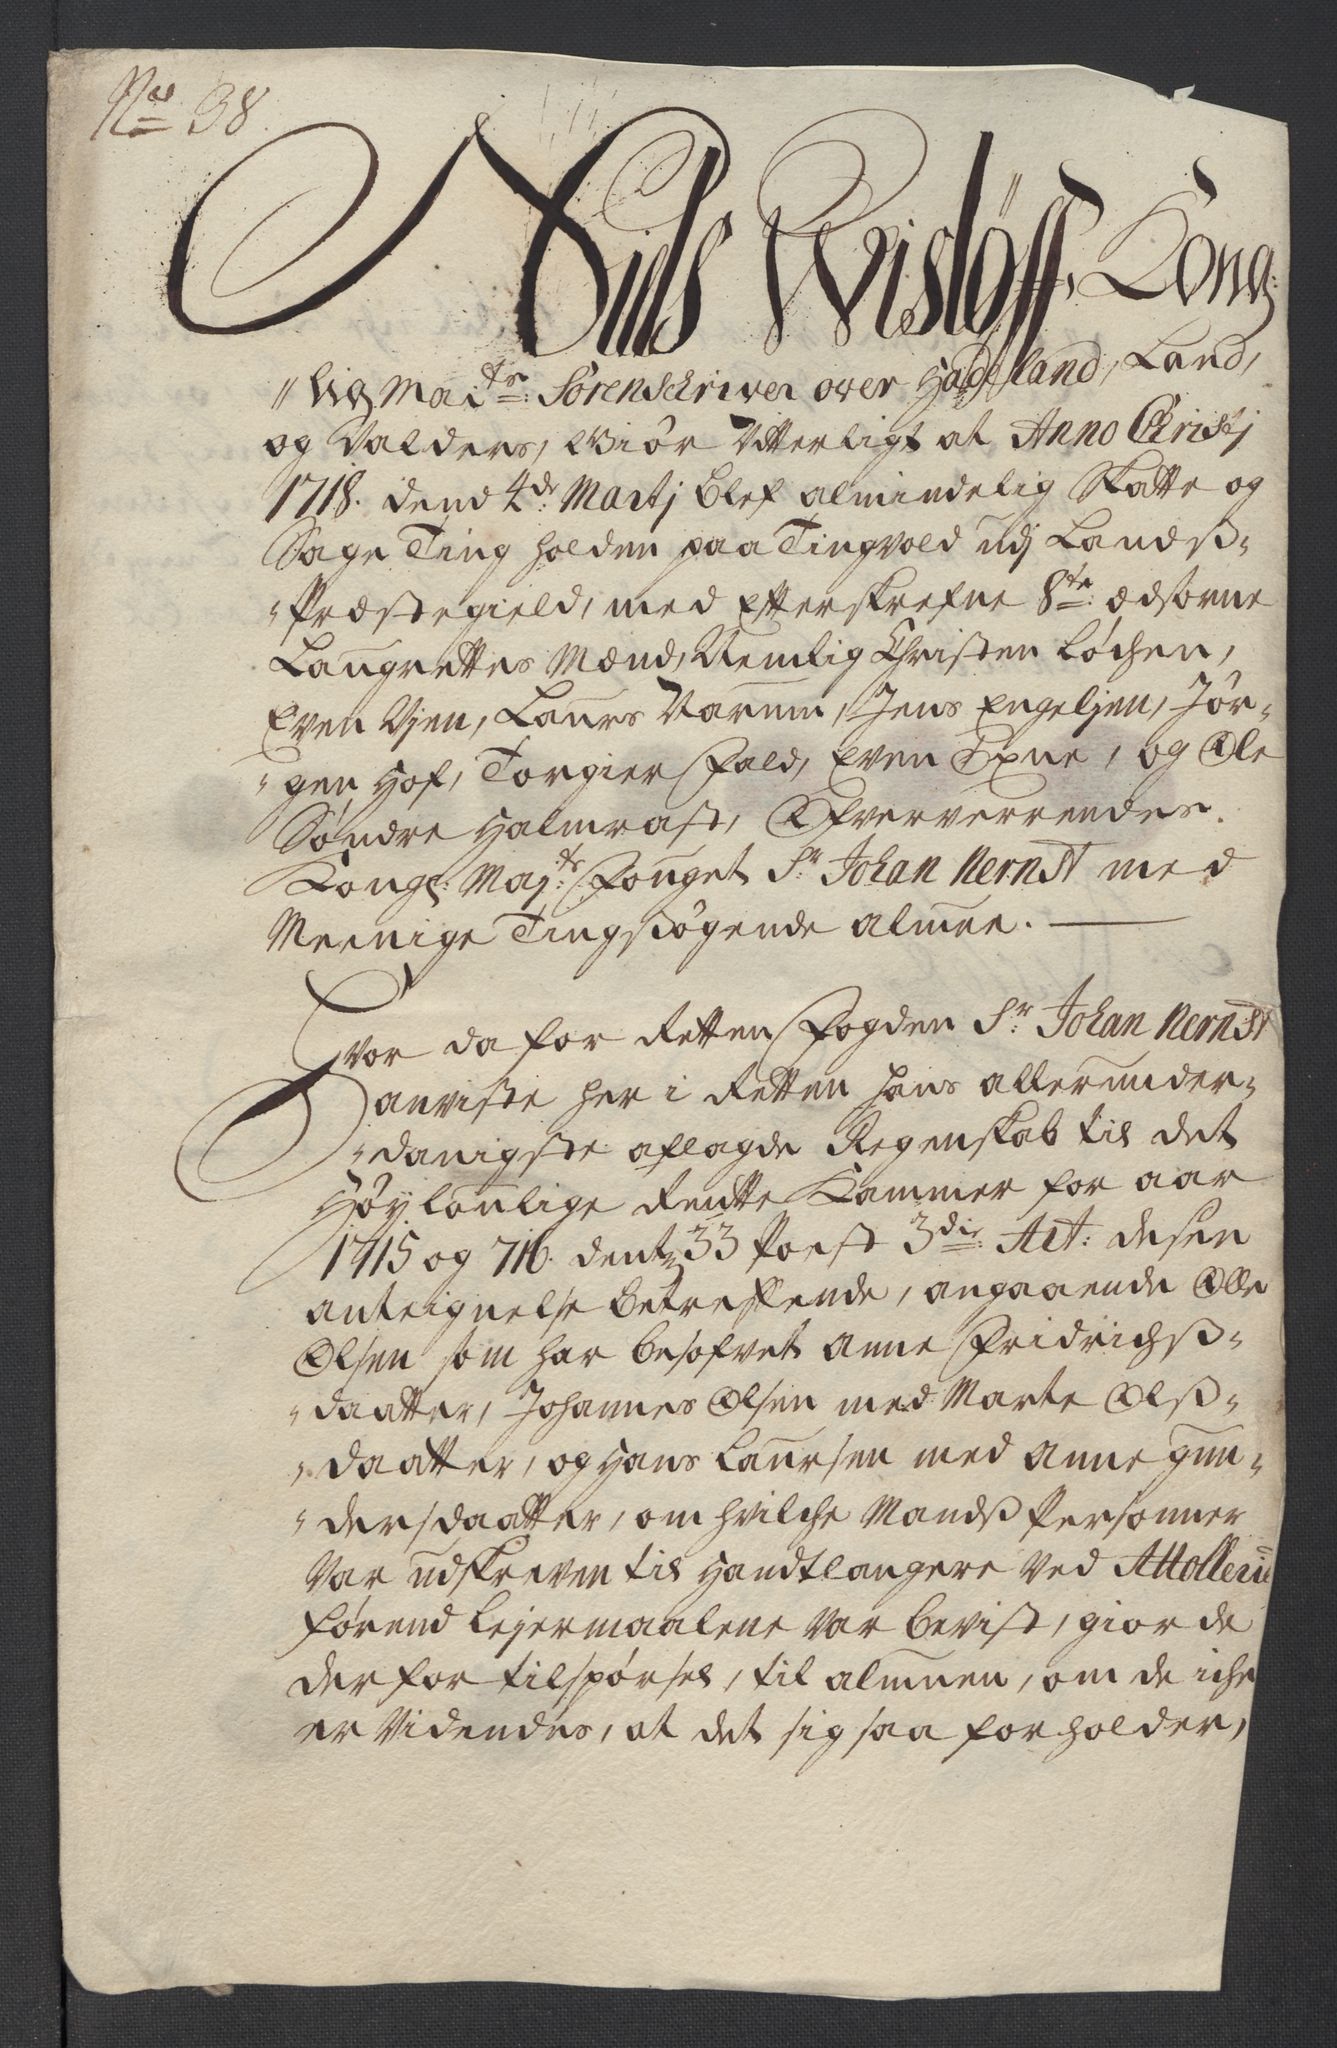 No 38.
Niels Wislöff, Kong
"lig Maij:ts Sorenskriver over Hadeland, Land,
og Valders, Giör Vitterligt at Anno Christj
1718. dend 4de Martj blef almindelig Skatte og
Sage Ting holden paa Tingvold udj Landß-
-Præstegield, med Efterskrefne 8te: ædsorne
Laugrettes Mænd, Nemlig Christen Løchen,
Even Vjen, Laurs Narum, Jens Engeljen, Jør-
-gen Hof, Torgier Fald, Even Exne, og Ole
Søndre Halmrast, Ofververrendes.
Kongl: Maj:ts Fouget Sr: Johan Nernst med
Meenige Tingsøgende almue.
Hvor da for Retten Fogden Sr: Johan Nernst
anviste her i Retten hans allerunder-
-danigste aflagde Regenskab til det
Høylovlige Rentte Kammer for aar
1715 og 716. dentz 33 Post 3die: Act: desen
anteignelse betreffende, angaaende Olle
Olsen som har besofvet Anne Fridrichß-
-daatter, Johannes Olsen med Marte Olß-
-daatter, og Hans Laursen med Anne Gun-
-dersdaatter, om hvilche Mandß Personner
var udskreven til Handtlangere ved Attolleriet
førend Lejermaalene var bevist, giorde
derfor tilspørsel, til almuen, om de iche
er videndes, at det sig saa forholder,